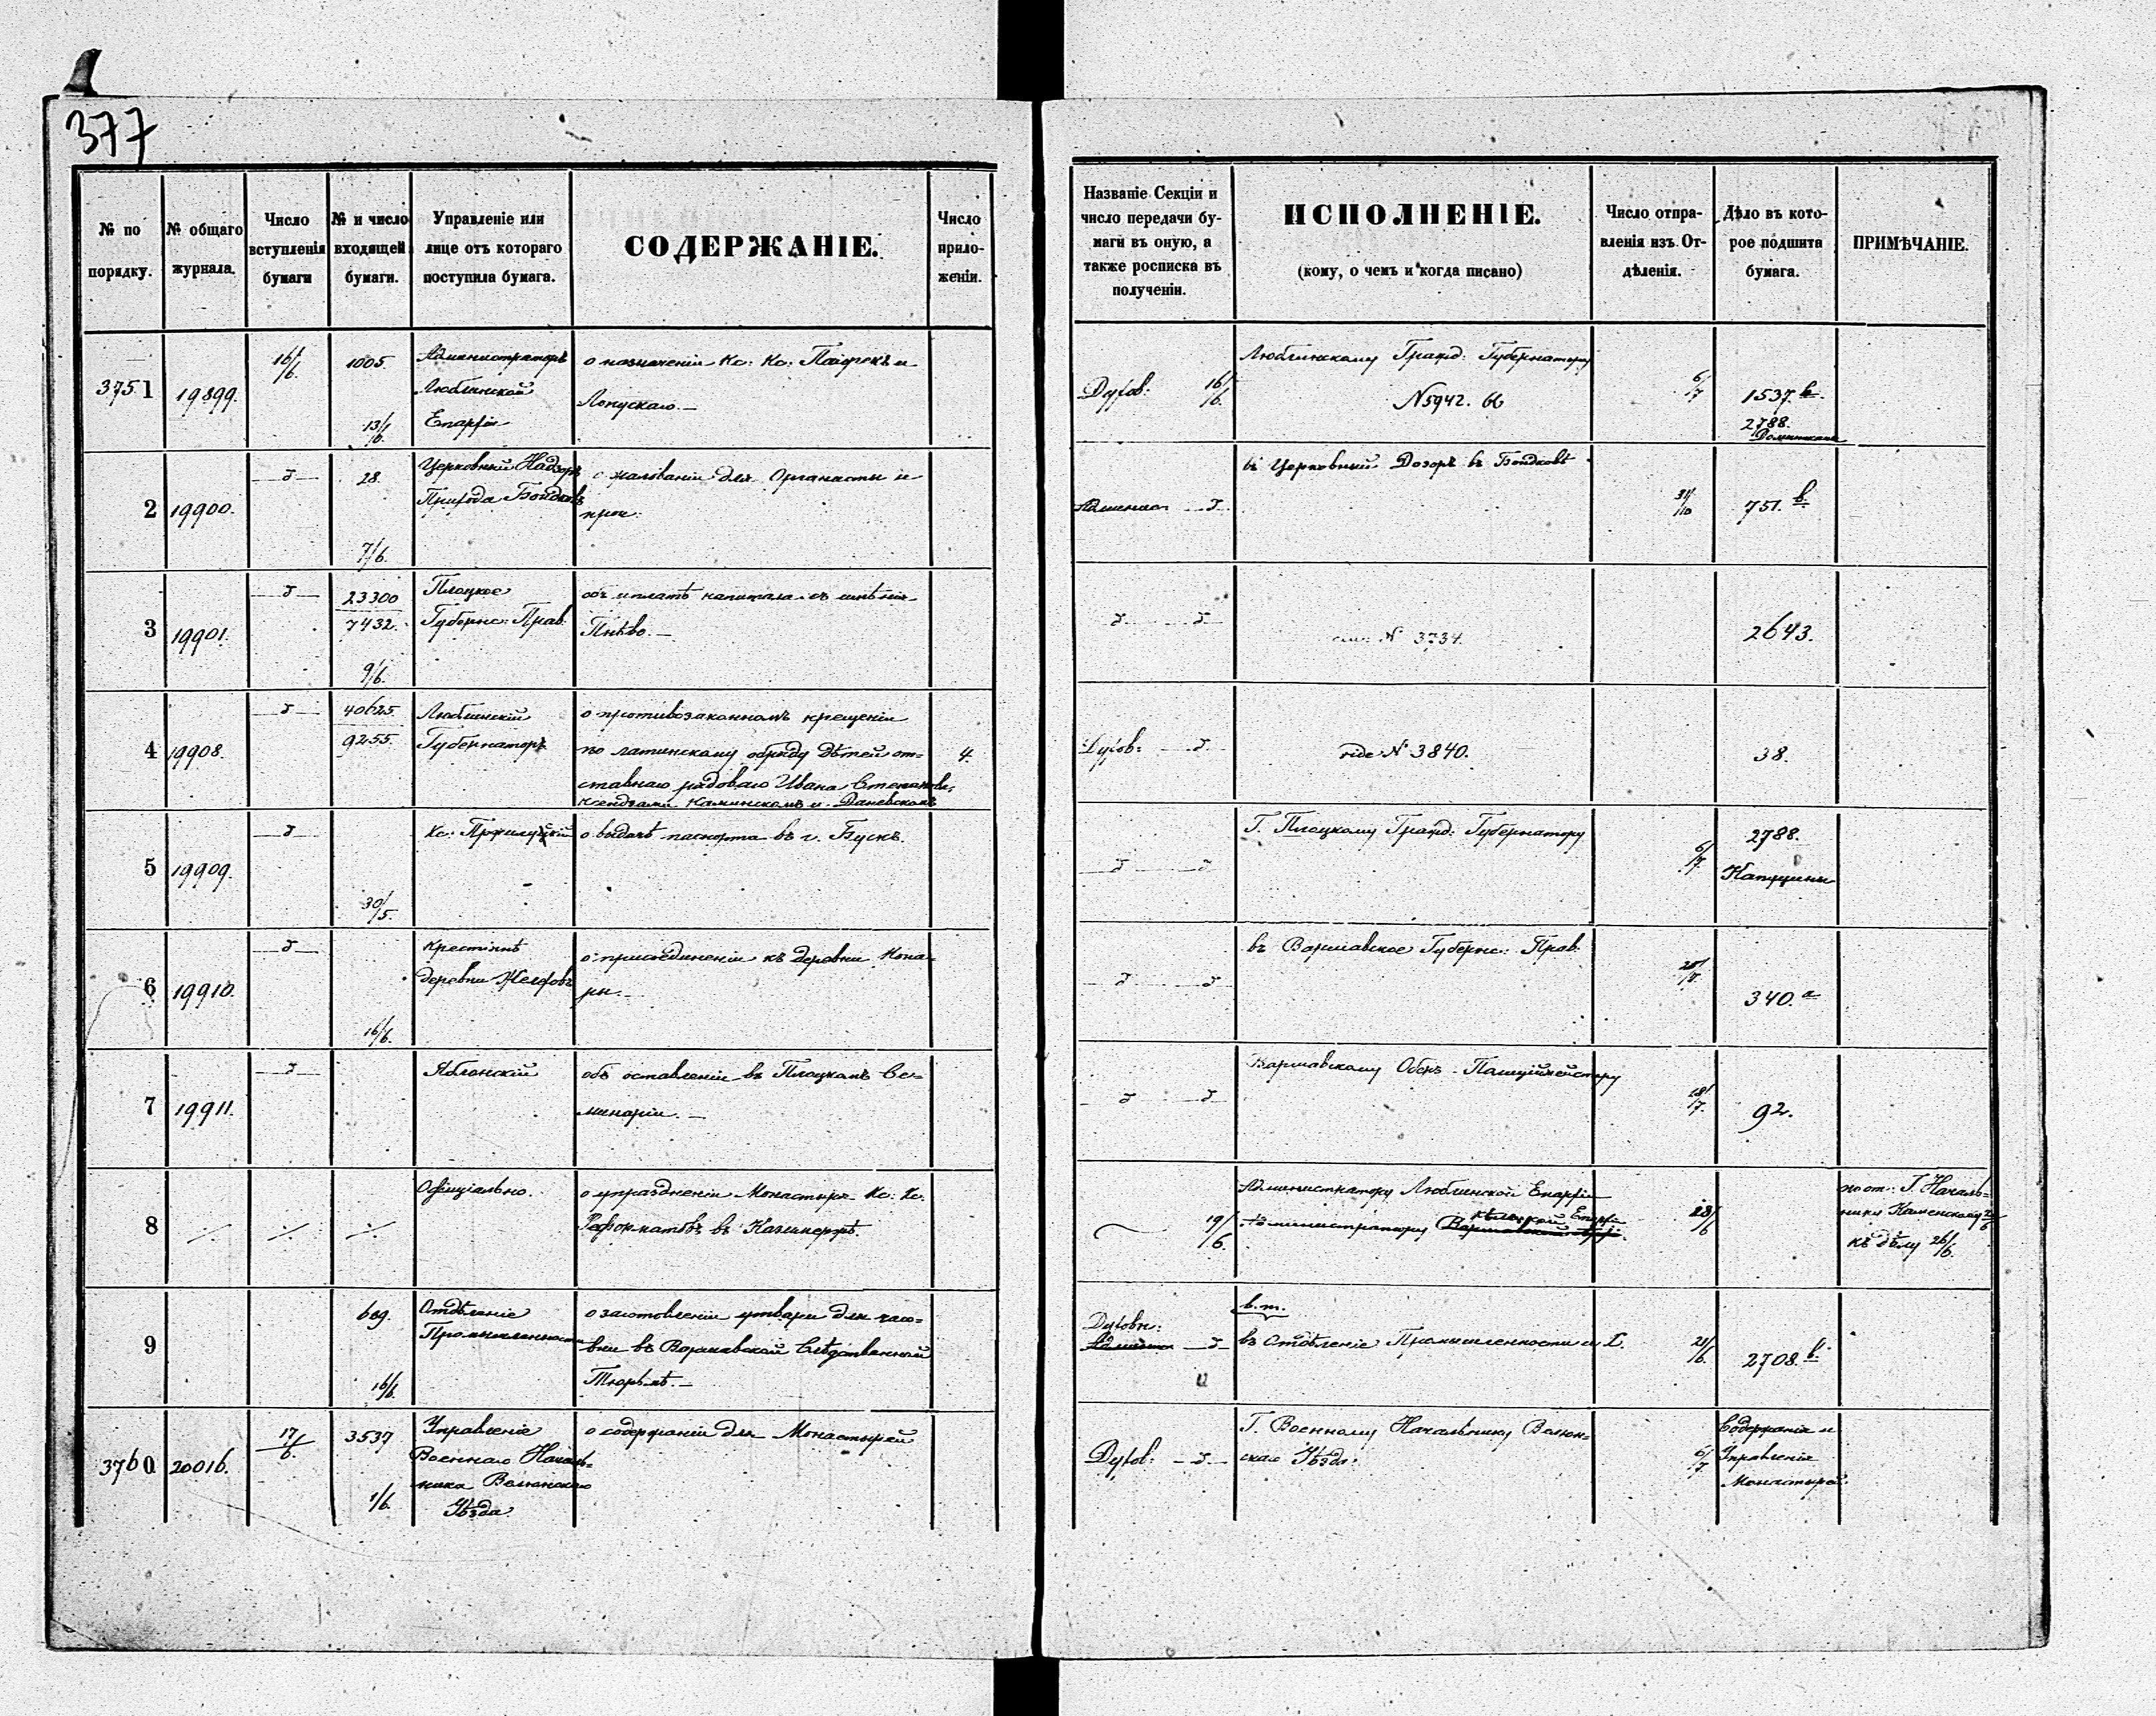 377
№ по
порядку.
№ общаго
журнала.
Число
вступленія
бумаги
№ и число
входящей
бумаги.
Управленіе или
лице отъ котораго
поступила бумага.
СОДЕРЖАНІЕ.
Число
прило-
женій.
Названіе Секціи и
число передачи бу-
маги въ оную, а
также росписка въ
полученіи.
ИСПОЛНЕНІЕ.
(кому, о чемъ и когда писано)
Число отпра-
вленія изъ От-
дѣленія.
Дѣло въ кото-
рое подшита
бумага.
ПРИМѢЧАНІЕ.
3751
19899.
16/6.
1005.
13/6.
Администраторъ
Люблинской
Епархіи
о назначеніи Кс: Кс:
Духов: 16/6.
Люблинскому Гражд: Губернатору
N 5942. 66
6/7
1537. в.
2788.
2
19900.
28.
7/6.
Церковный Надзоръ
Прихода
о жалованіи для Органисты и
проч:
въ Церковный Дозоръ въ
31/10
751. в.
3
19901.
23300
7432.
9/6.
Плоцкое
Губернс: Прав.
объ уплатѣ капитала съ имѣнія
Пнѣво.
N 3734.
2643.
4
19908.
40625
9255.
Люблинскій
Губернаторъ
о противозаконномъ крещеніи
по латинскому обряду дѣтей от=
ставнаго рядоваго Ивана
ксендзами Каминскимъ и
4.
Духов:
vide N 3840.
38.
5
19909.
30/5.
Кс:
о выдачѣ паспорта въ г. Бускъ.
Г. Плоцкому Гражд: Губернатору
6/7.
2788.
Капуцины
6
19910.
16/6.
крестьянъ
деревни
о присоединеніи къ деревни Кона=
ры.
въ Варшавское Губернс: Прав.
340. а
7
19911.
Яблонскій
объ оставленіи въ Плоцкомъ Се=
минаріи.
Варшавскому Оберъ-Полиціймейстеру
18/7.
92.
8
Офиціально.
о упраздненіи Монастыря Кс: Кс:
Реформатовъ въ Казимержѣ.
19/6.
Администратору Люблинской Епархіи
Администратору Кѣлецкой Епархіи
28/6
Г. Началь=
нику Каменскому
къ дѣлу 26/6.
9
609.
16/6.
Отдѣленіе
Промышленности
о заготовленіи утвари для часо=
вни въ Варшавской Слѣдственной
Тюрьмѣ.
Духовн:
в. т.
въ Отдѣленіе Промышленности и Т.
21/6.
2708. в.
3760
20016.
17/6.
3537
1/6.
Управленіе
Военнаго Началь=
ника Велюнскаго
Уѣзда
о содержаніи для Монастырей
Духов:
Г. Военному Начальнику Велюн=
скаго Уѣзда.
6/7
Содержаніе и
Управленіе
Монастырей.